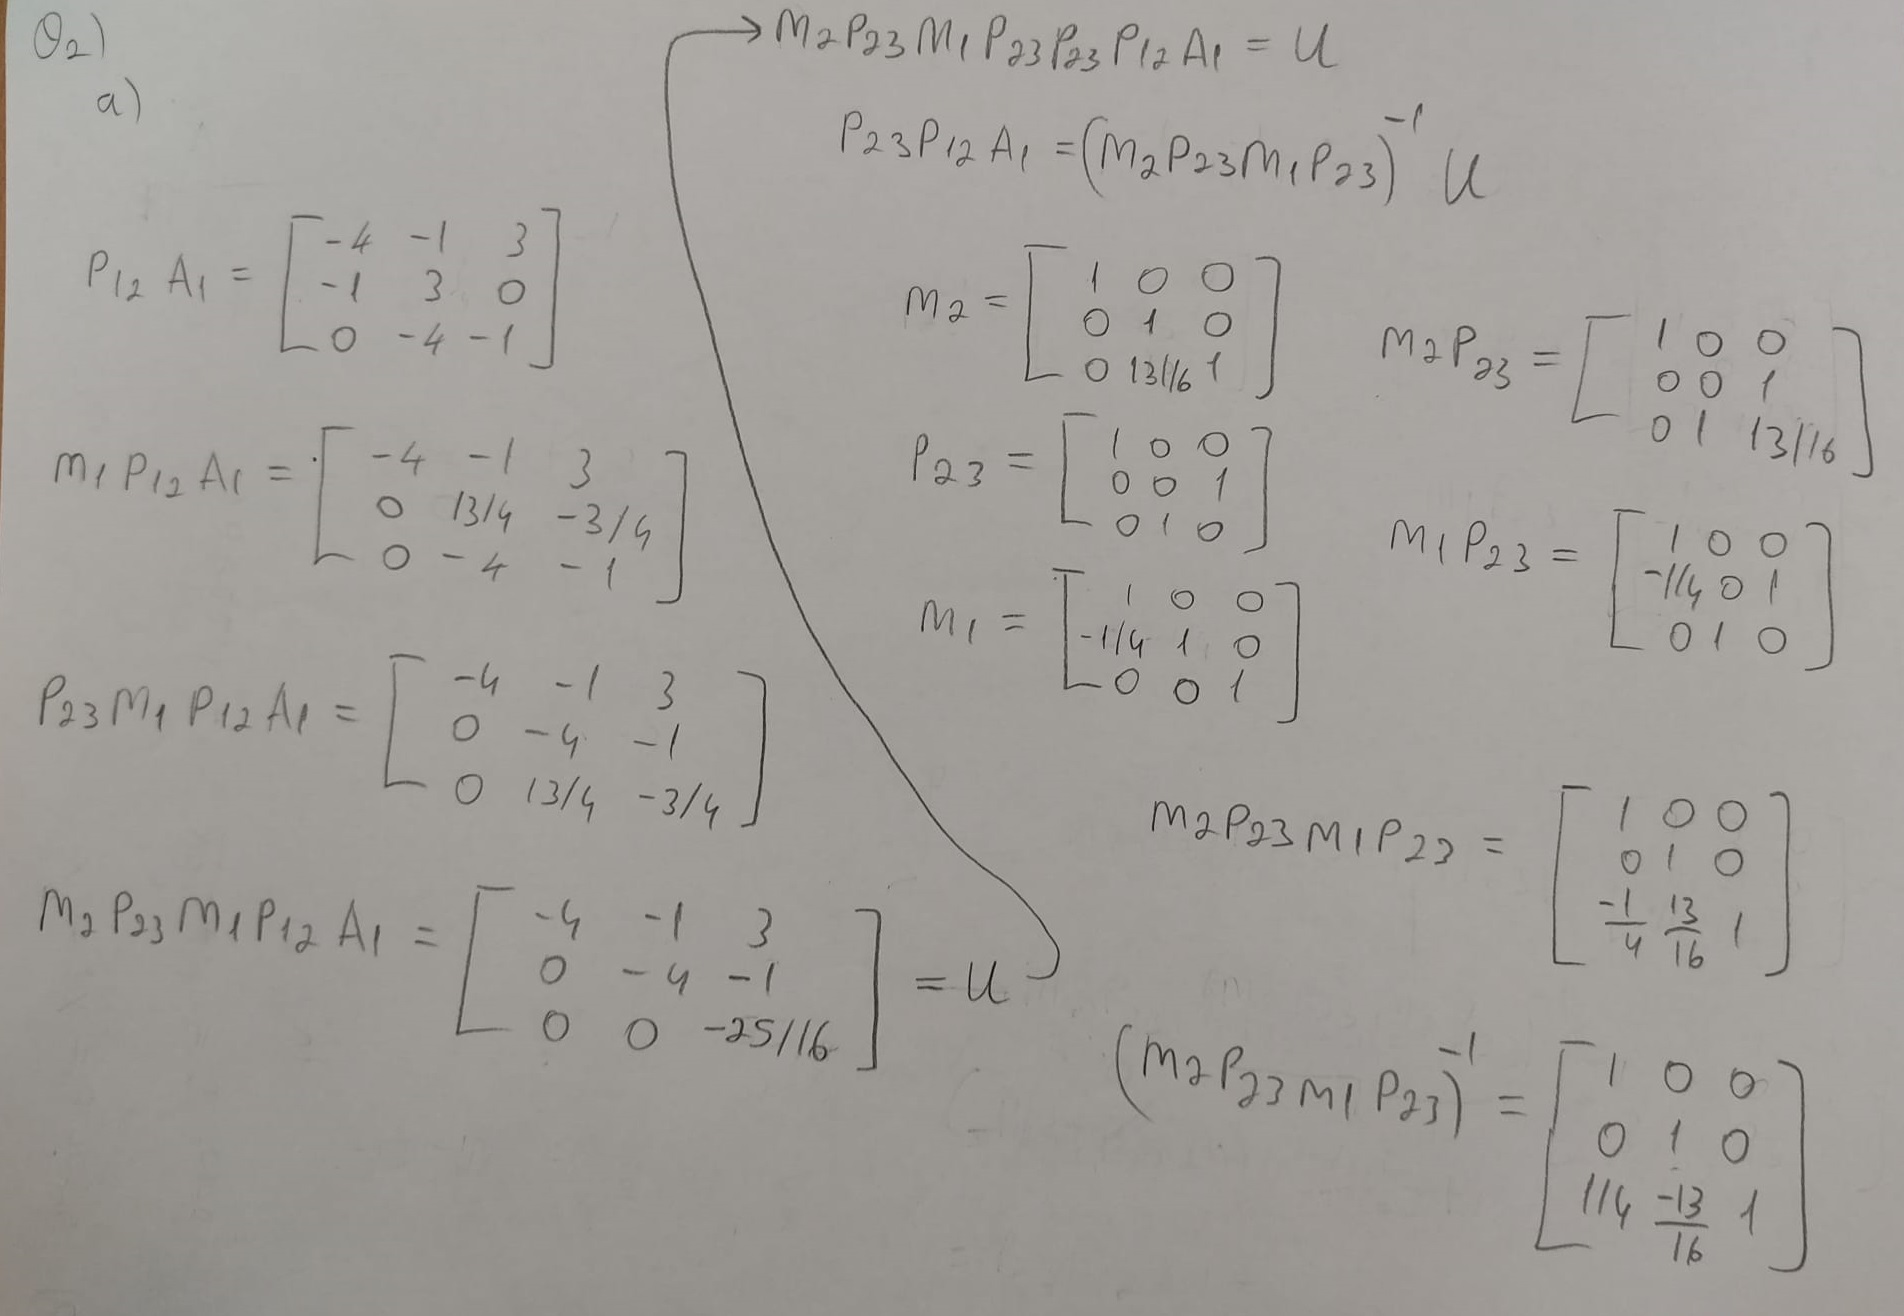 Q2)
a)
P12 A1 = [ -4 -1 3
-1 3 0
0 -4 -1 ]
M1 P12 A1 = [ -4 -1 3
0 13/4 -3/4
0 -4 -1 ]
P23 M1 P12 A1 = [ -4 -1 3
0 -4 -1
0 13/4 -3/4 ]
M2 P23 M1 P12 A1 = [ -4 -1 3
0 -4 -1
0 0 -25/16 ] = U
→ M2 P23 M1 P23 P23 P12 A1 = U
P23 P12 A1 = (M2 P23 M1 P23)^-1 U
M2 = [ 1 0 0
0 1 0
0 13/16 1 ]
P23 = [ 1 0 0
0 0 1
0 1 0 ]
M1 = [ 1 0 0
-1/4 1 0
0 0 1 ]
M2 P23 = [ 1 0 0
0 0 1
0 1 13/16 ]
M1 P23 = [ 1 0 0
-1/4 0 1
0 1 0 ]
M2 P23 M1 P23 = [ 1 0 0
0 1 0
-1/4 13/16 1 ]
(M2 P23 M1 P23)^-1 = [ 1 0 0
0 1 0
1/4 -13/16 1 ]